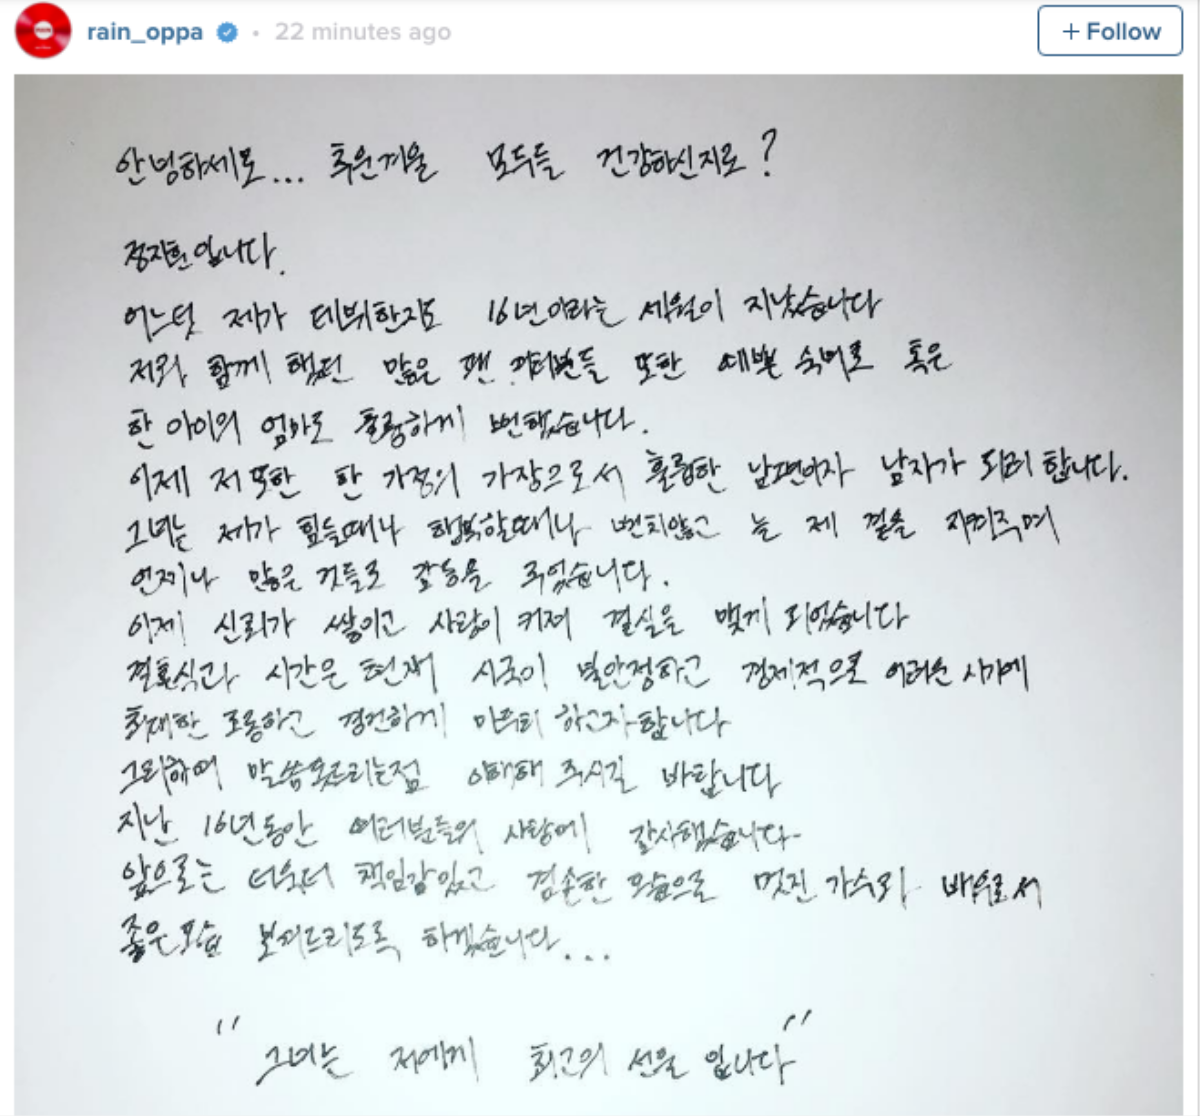 rain_oppa • 22 minutes ago
+ Follow
안녕하세요... 추운겨울 모두들 건강하신지요?
정지훈입니다.
어느덧 제가 데뷔한지도 16년이라는 세월이 지났습니다
저와 함께 했던 많은 팬 여러분들 또한 예쁜 숙녀로 혹은
한 아이의 엄마로 훌륭하게 변했습니다.
이제 저 또한 한 가정의 가장으로서 훌륭한 남편이자 남자가 되려 합니다.
그녀는 제가 힘들때나 행복할때나 변치않고 늘 제 곁을 지켜주며
언제나 많은 것들로 감동을 주었습니다.
이제 신뢰가 쌓이고 사랑이 커져 결실을 맺게 되었습니다
결혼식과 시간은 현재 시국이 불안정하고 경제적으로 어려운 시기에
최대한 조용하고 경건하게 마무리 하고자합니다
그리하여 말씀못드리는점 이해해 주시길 바랍니다
지난 16년동안 여러분들의 사랑에 감사했습니다
앞으로는 더욱더 책임감있고 겸손한 모습으로 멋진 가수와 배우로서
좋은모습 보여드리도록 하겠습니다...
"그녀는 저에게 최고의 선물 입니다"